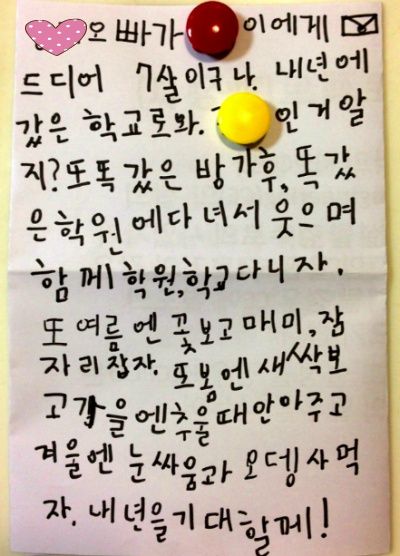 오빠가 이에게
드디어 7살이구나. 내년에
갔은 학교로와. 인거알
지? 또 똑 갔은 방가후, 똑 갔
은 학원에 다녀서 웃으며
함께 학원,학교 다니자.
또 여름엔 꽃보고 매미, 잠
자리잡자. 또 봄엔 새싹보
고 가을엔 추울때 안아주고
겨울엔 눈싸움과 오뎅사먹
자. 내년을 기대할께!